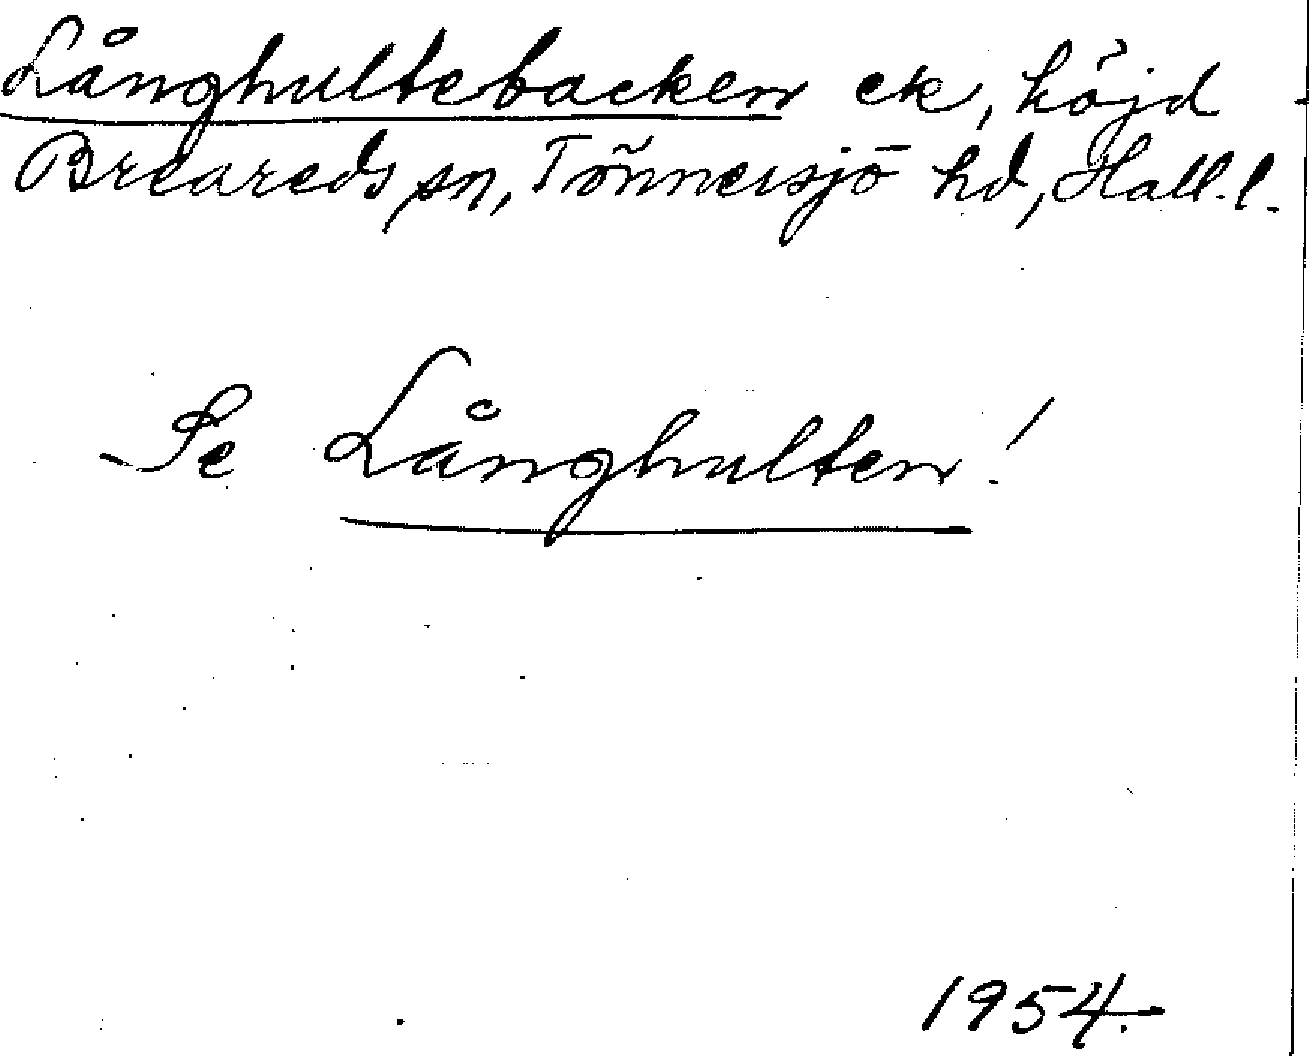 Långhultebacken ek, höjd
Breareds sn, Tönnersjö hd, Hall. l.
Se Långhulten!
1954.